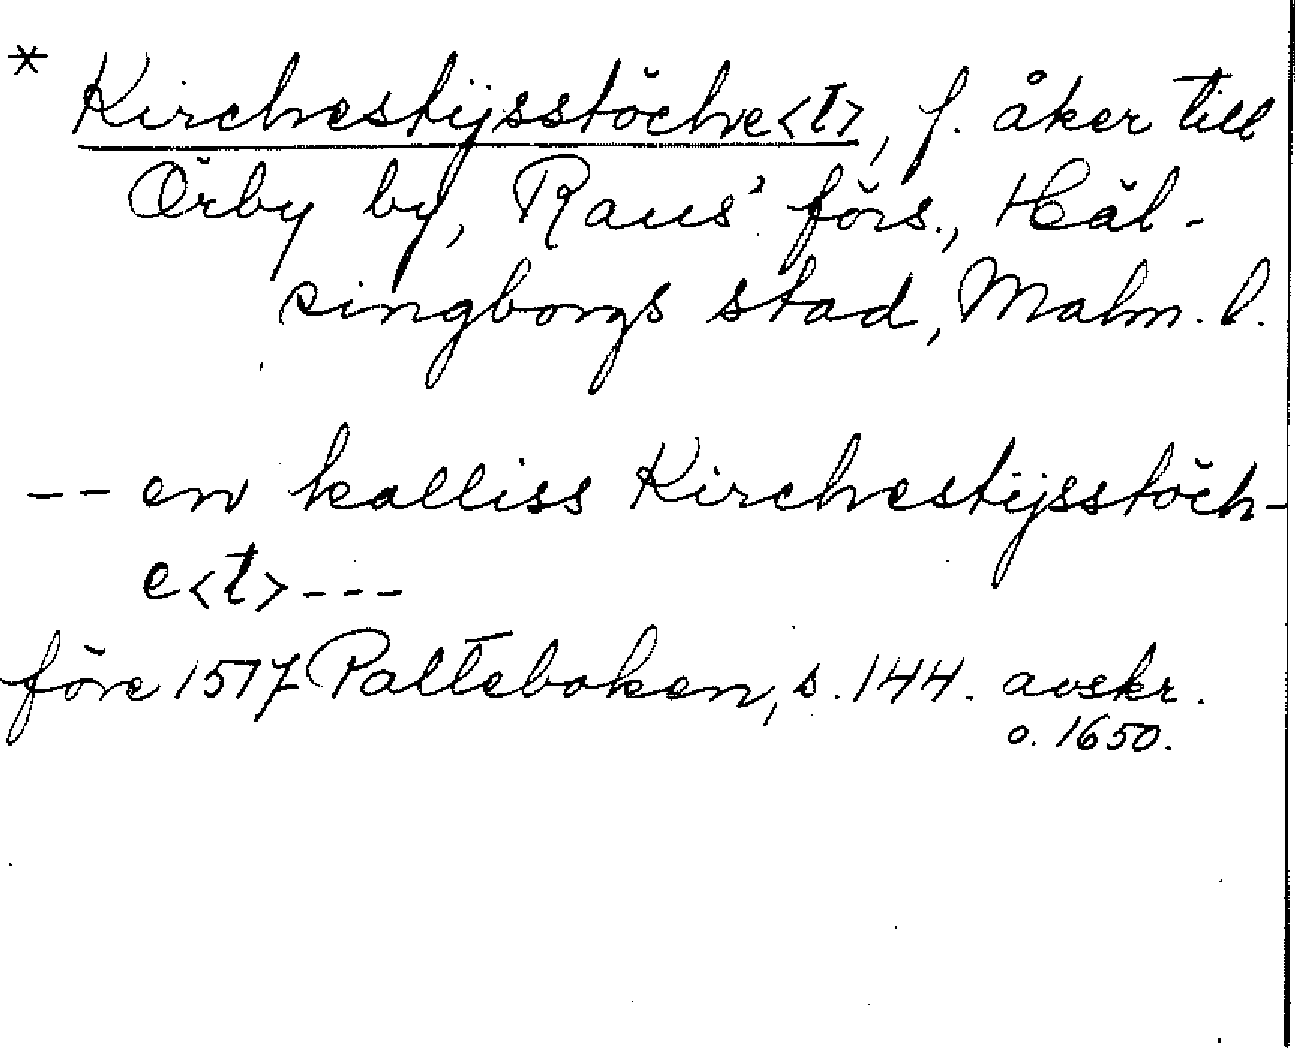 * Kirchestijsstöche<t>, f. åker till
Örby by, Raus' förs., Häl-
singborgs stad, Malm. l.
-- en kalliss Kirchestijsstöch-
e<t> ---
före 1517 Palteboken, s. 144. avskr.
o. 1650.